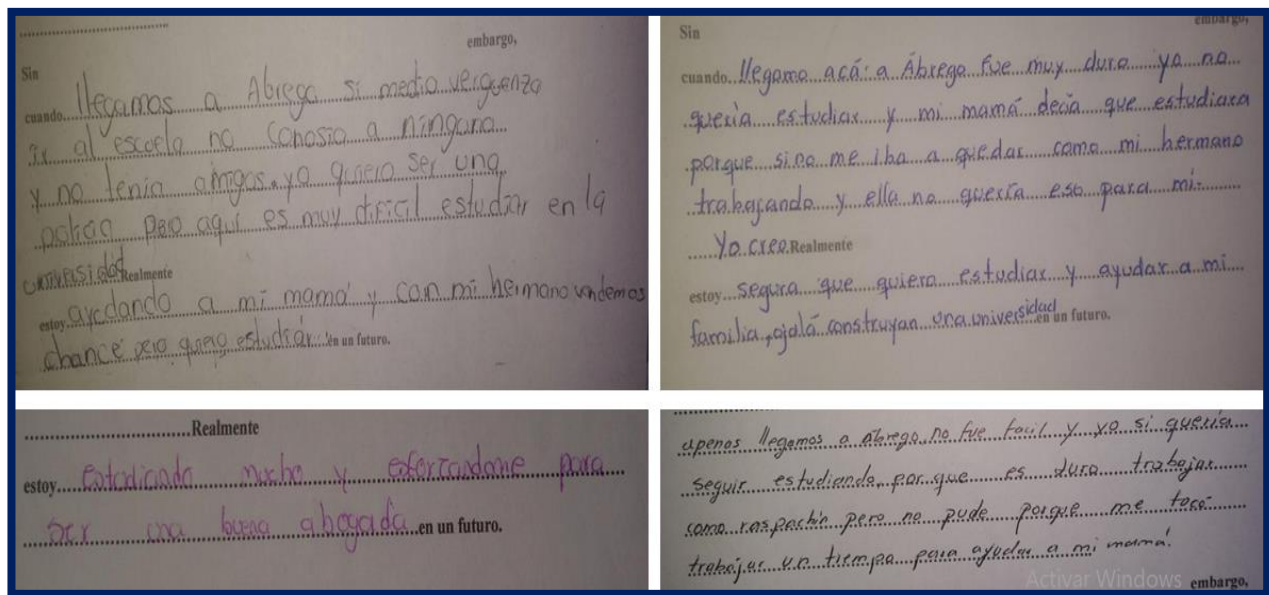 embargo,
Sin
cuando llegamos a Abrego si medio verguenza
ir al escuela no conosia a ninguno
y no tenia amigos. yo quiero ser una
policia pero aqui es muy dificil estudiar en la
universidad Realmente
estoy ayudando a mi mamá y con mi hermano vendemos
chance pero quiero estudiar en un futuro.
embargo,
Sin
cuando llegamo acá a Ábrego fue muy duro yo no
quería estudiar y mi mamá decía que estudiara
porque sino me iba a quedar como mi hermano
trabajando y ella no quería eso para mi.
Yo creo Realmente
estoy segura que quiero estudiar y ayudar a mi
familia, ojalá construyan una universidad en un futuro.
Realmente
estoy estudiando mucho y esforzandome para
ser una buena abogada en un futuro.
apenas llegamos a abrego no fue facil y yo si quería
seguir estudiando, por que es duro trabajar
como raspachin pero no pude porque me tocó
trabajar un tiempo para ayudar a mi mamá.
Activar Windows embargo,